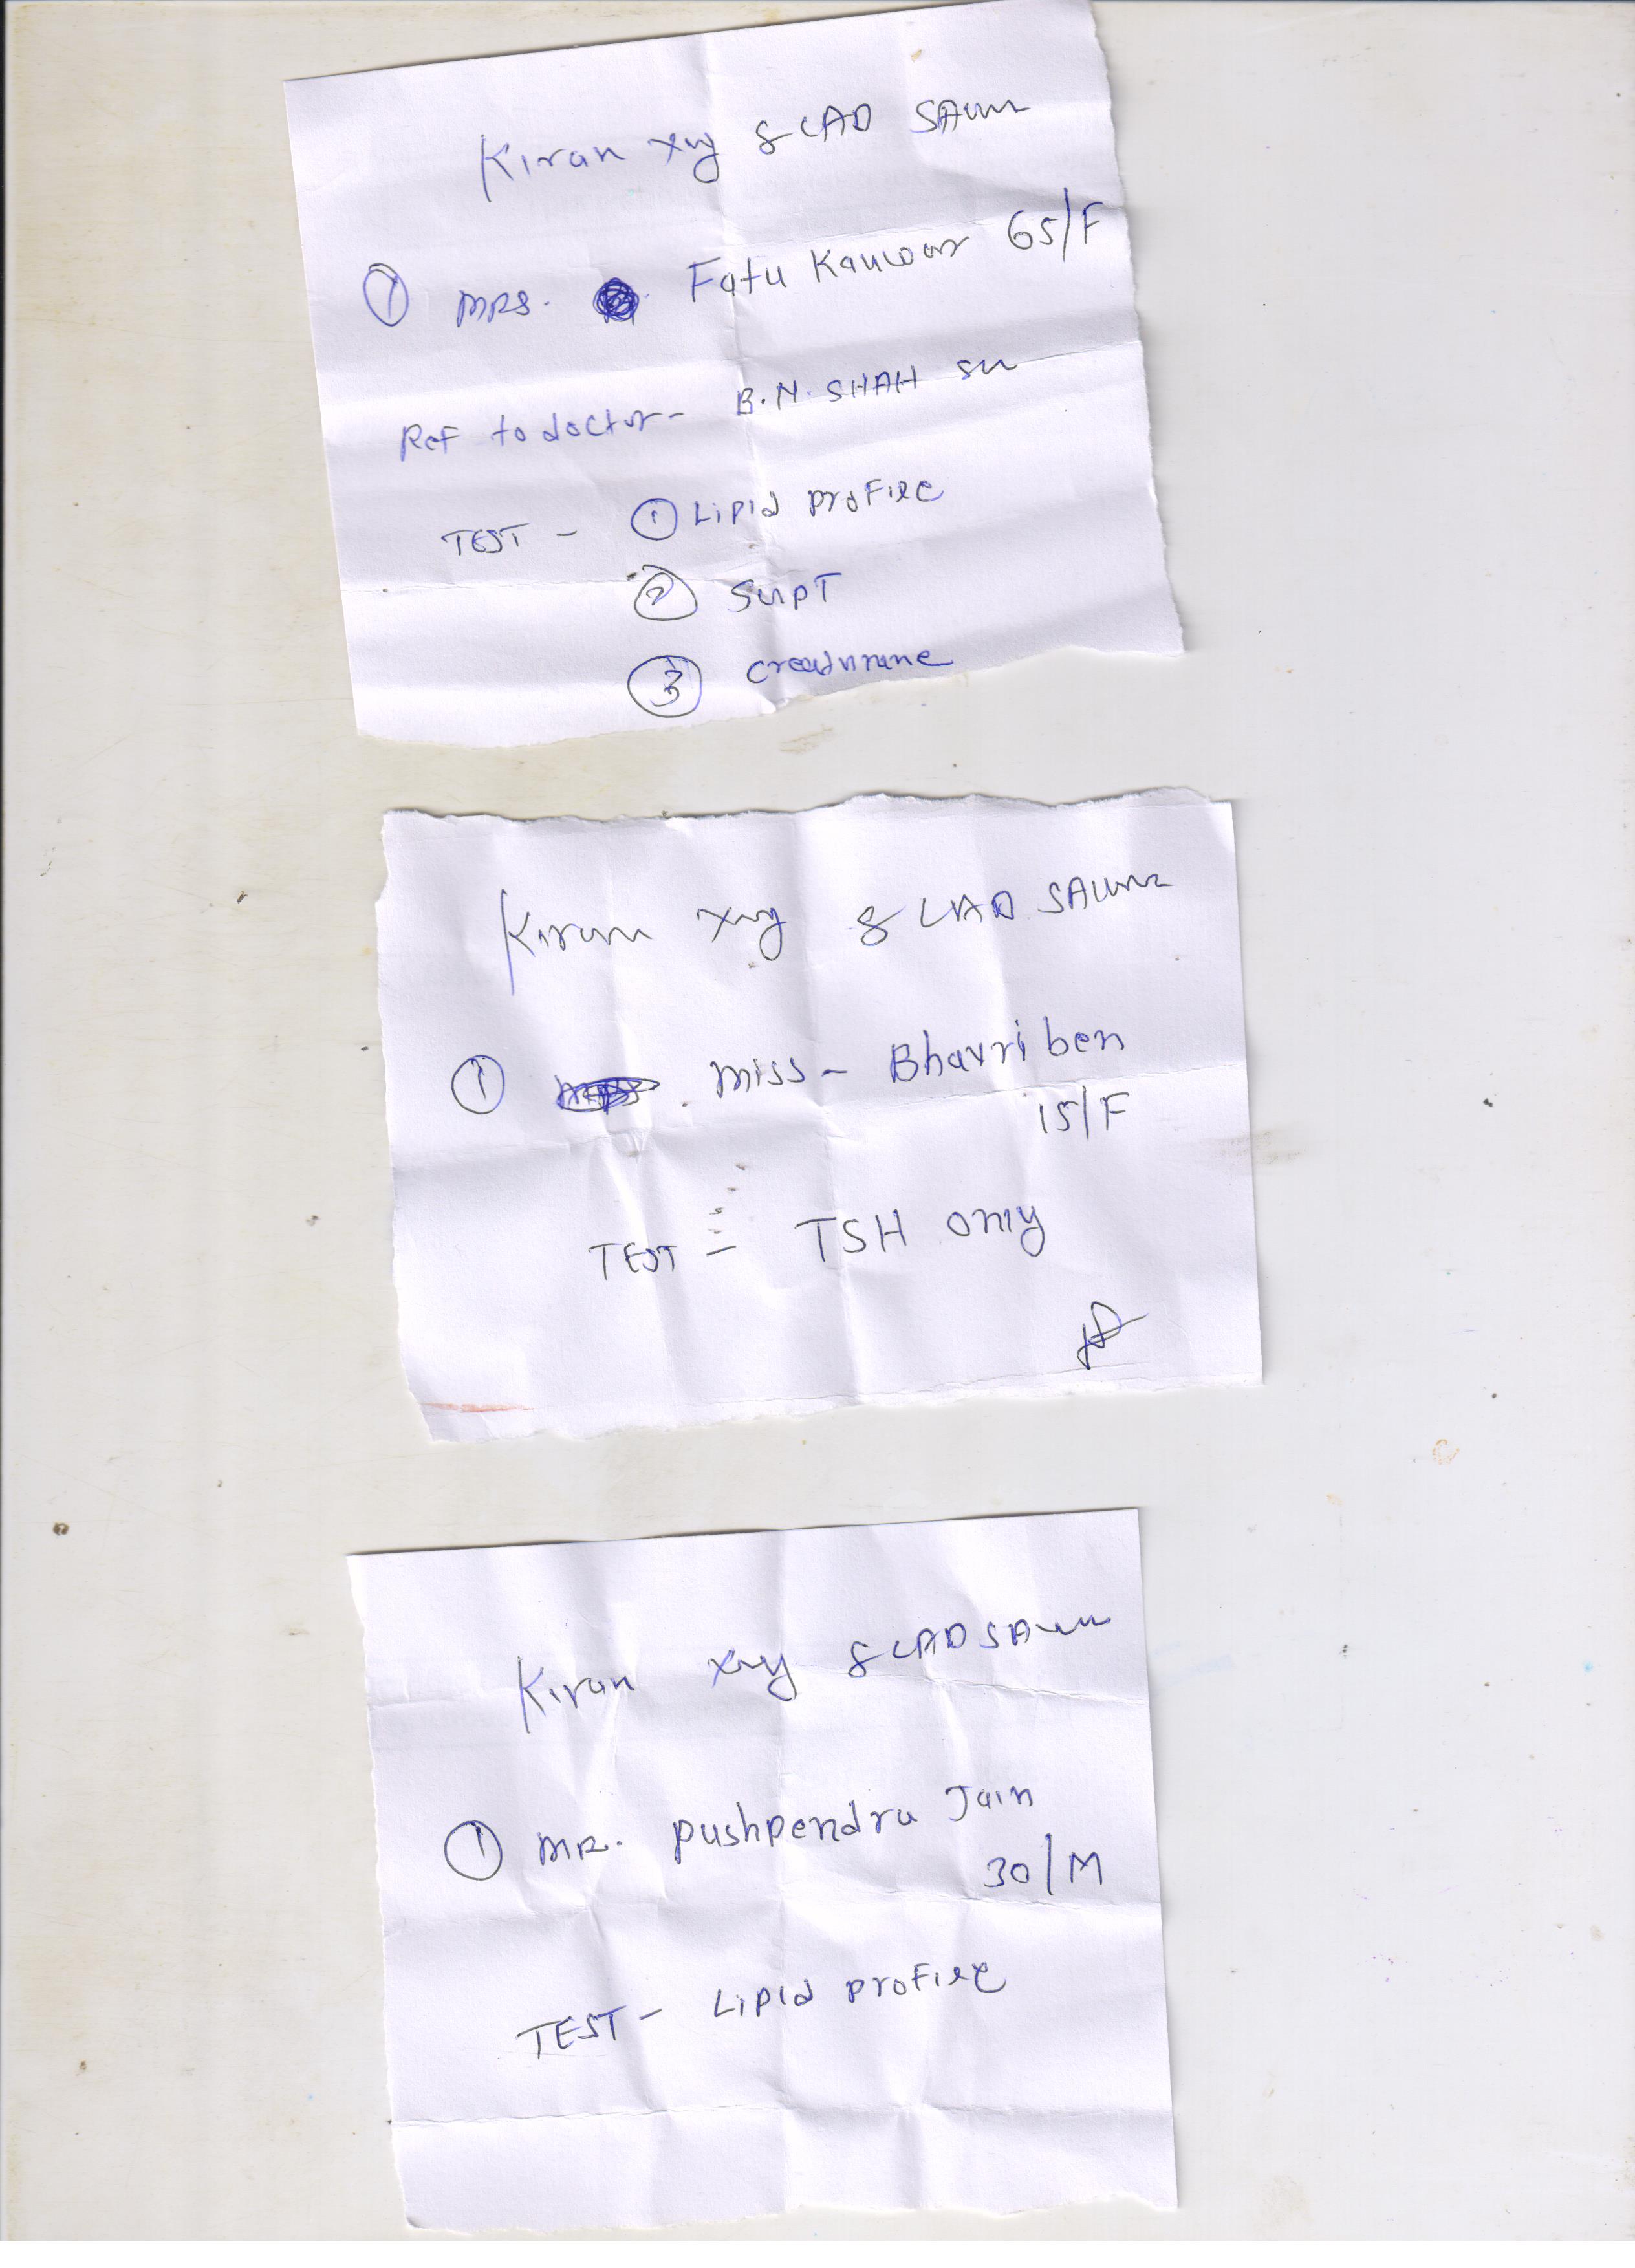 Kiran Xry & LAB
① MRS. Fatu Kanwar 65/F
Ref to doctor - B.N. SHAH
TEST - ① Lipid profile
② SGPT
③ creatinine
Kiran Xry & LAB
① miss - Bhavri ben
15/F
TEST = TSH only
Kiran Xry & LAB
① MR. Pushpendra Jain
30/M
TEST - Lipid profile